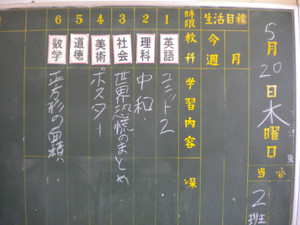 5月20日木曜日
当番 2班
生活目標
月
今週
時限 教科 学習内容
1 英語 ユニット2
2 理科 中和
3 社会 世界恐慌のまとめ
4 美術 ポスター
5 道徳
6 数学 正方形の面積‥